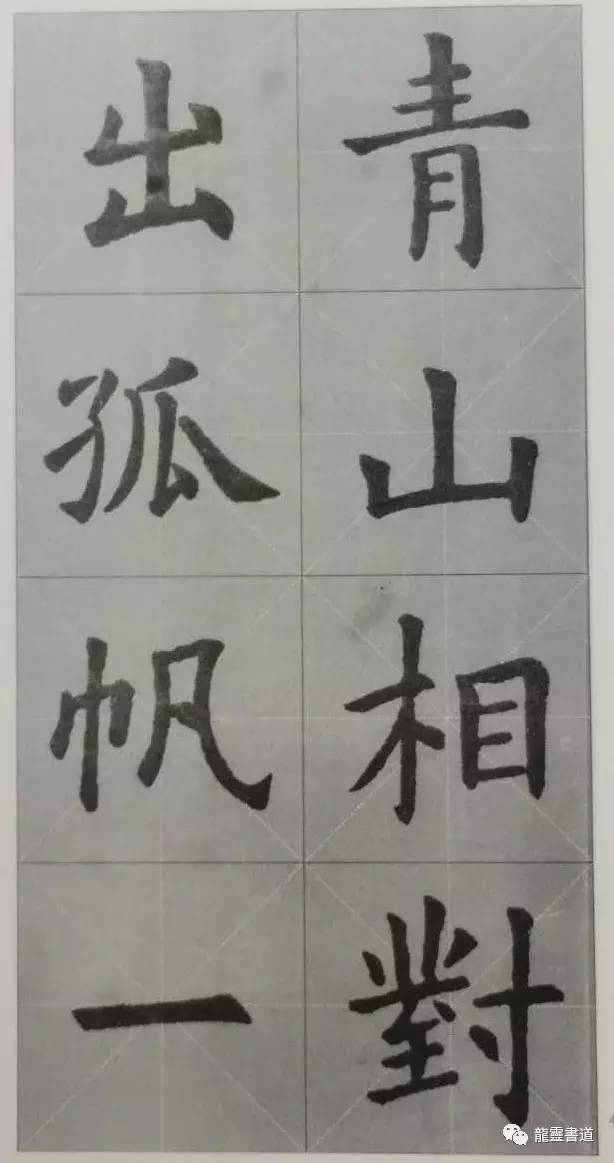 青山相對
出孤帆一
龍靈書道